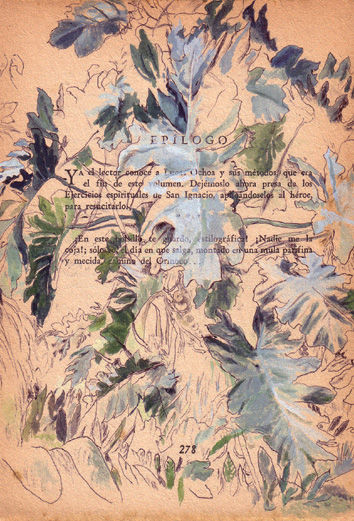 EPÍLOGO
YA el lector conoce a Lucas Ochoa y sus métodos, que era
el fin de este volumen. Dejémoslo ahora presa de los
Ejercicios espirituales de San Ignacio, aplicándoselos al héroe,
para resucitarlo.
¡En este bolsillo te guardo, estilográfica! ¡Nadie me la
coja!; sólo yo, el día en que salga, montado en una mula parifina
y mecida, camino del Orinoco...
278